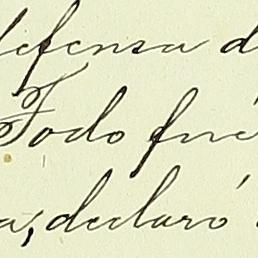 defensa d
Todo fué
a, declaró